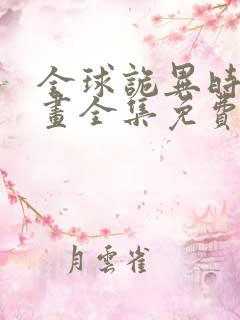 全球詭異時
畫全集免費
月雲雀